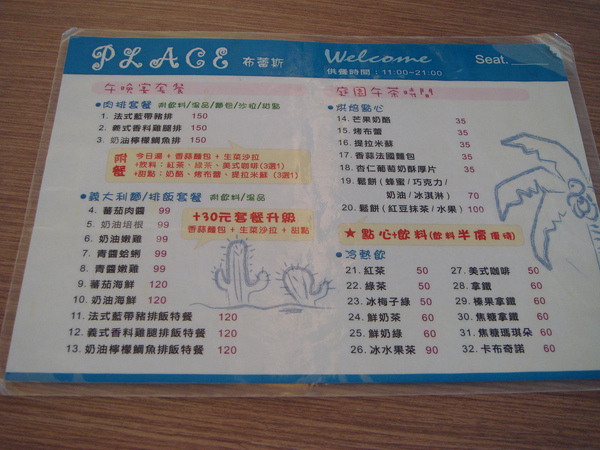 PLACE 布蕾斯
Welcome
Seat.
供餐時間:11:00~21:00
午晚宴套餐
●肉排套餐 附飲料/湯品/麵包/沙拉/甜點
1. 法式藍帶豬排 150
2. 義式香料雞腿排 150
3. 奶油檸檬鯛魚排 150
附餐
今日湯 + 香蒜麵包 + 生菜沙拉
+飲料:紅茶、綠茶、美式咖啡(3選1)
+甜點:奶酪、烤布蕾、提拉米蘇(3選1)
●義大利麵/排飯套餐 附飲料/湯品
4. 蕃茄肉醬 99
5. 奶油培根 99
6. 奶油嫩雞 99
7. 青醬蛤蜊 99
8. 青醬嫩雞 99
9. 蕃茄海鮮 120
10. 奶油海鮮 120
11. 法式藍帶豬排飯特餐 120
12. 義式香料雞腿排飯特餐 120
13. 奶油檸檬鯛魚排飯特餐 120
+30元套餐升級
香蒜麵包 + 生菜沙拉 + 甜點
庭園午茶時間
●烘焙點心
14. 芒果奶酪 35
15. 烤布蕾 35
16. 提拉米蘇 35
17. 香蒜法國麵包 35
18. 杏仁葡萄奶酥厚片 35
19. 鬆餅(蜂蜜/巧克力/
奶油/冰淇淋) 70
20. 鬆餅(紅豆抹茶/水果) 100
★ 點心+飲料(飲料半價優待)
●冷熱飲
21. 紅茶 50
22. 綠茶 50
23. 冰梅子綠 50
24. 鮮奶茶 60
25. 鮮奶綠 60
26. 冰水果茶 90
27. 美式咖啡 50
28. 拿鐵 60
29. 榛果拿鐵 60
30. 焦糖拿鐵 60
31. 焦糖瑪琪朵 60
32. 卡布奇諾 60